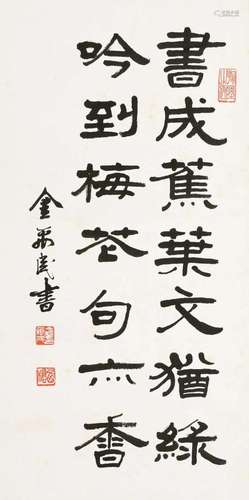 書成蕉葉文猶綠
吟到梅花句亦香
金禹民書